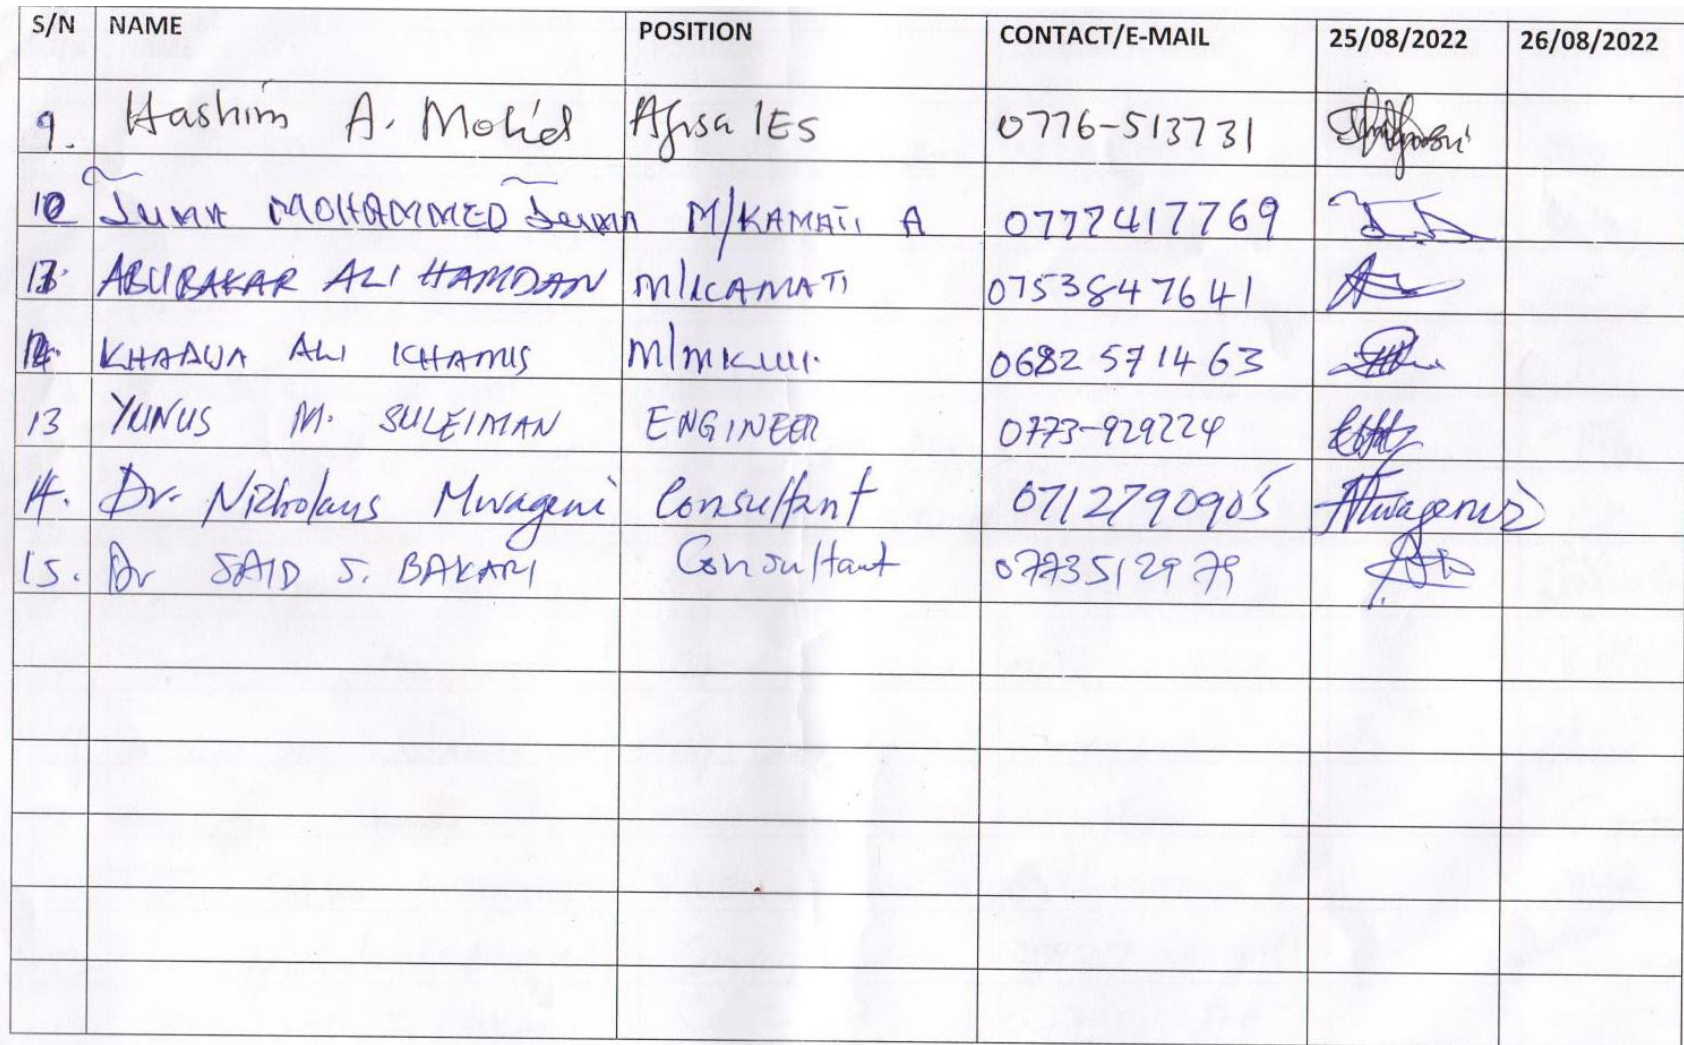 S/N NAME POSITION CONTACT/E-MAIL 25/08/2022 26/08/2022
9. Hashim A. Molid Afisa IES 0776-513731
10 Juma MOHAMMED Juma M/KAMATI A 0777417769
ABUBAKAR ALI HAMDAN M/KAMATI 0753847641
KHADIJA ALI KHAMIS M/MKUU. 0682 571463
13 YUNUS M. SULEIMAN ENGINEER 0773-929224
14. Dr. Nicholaus Mwageni Consultant 0712790905 Mwageni
15. Dr SAID S. BAKARI Consultant 0773512979